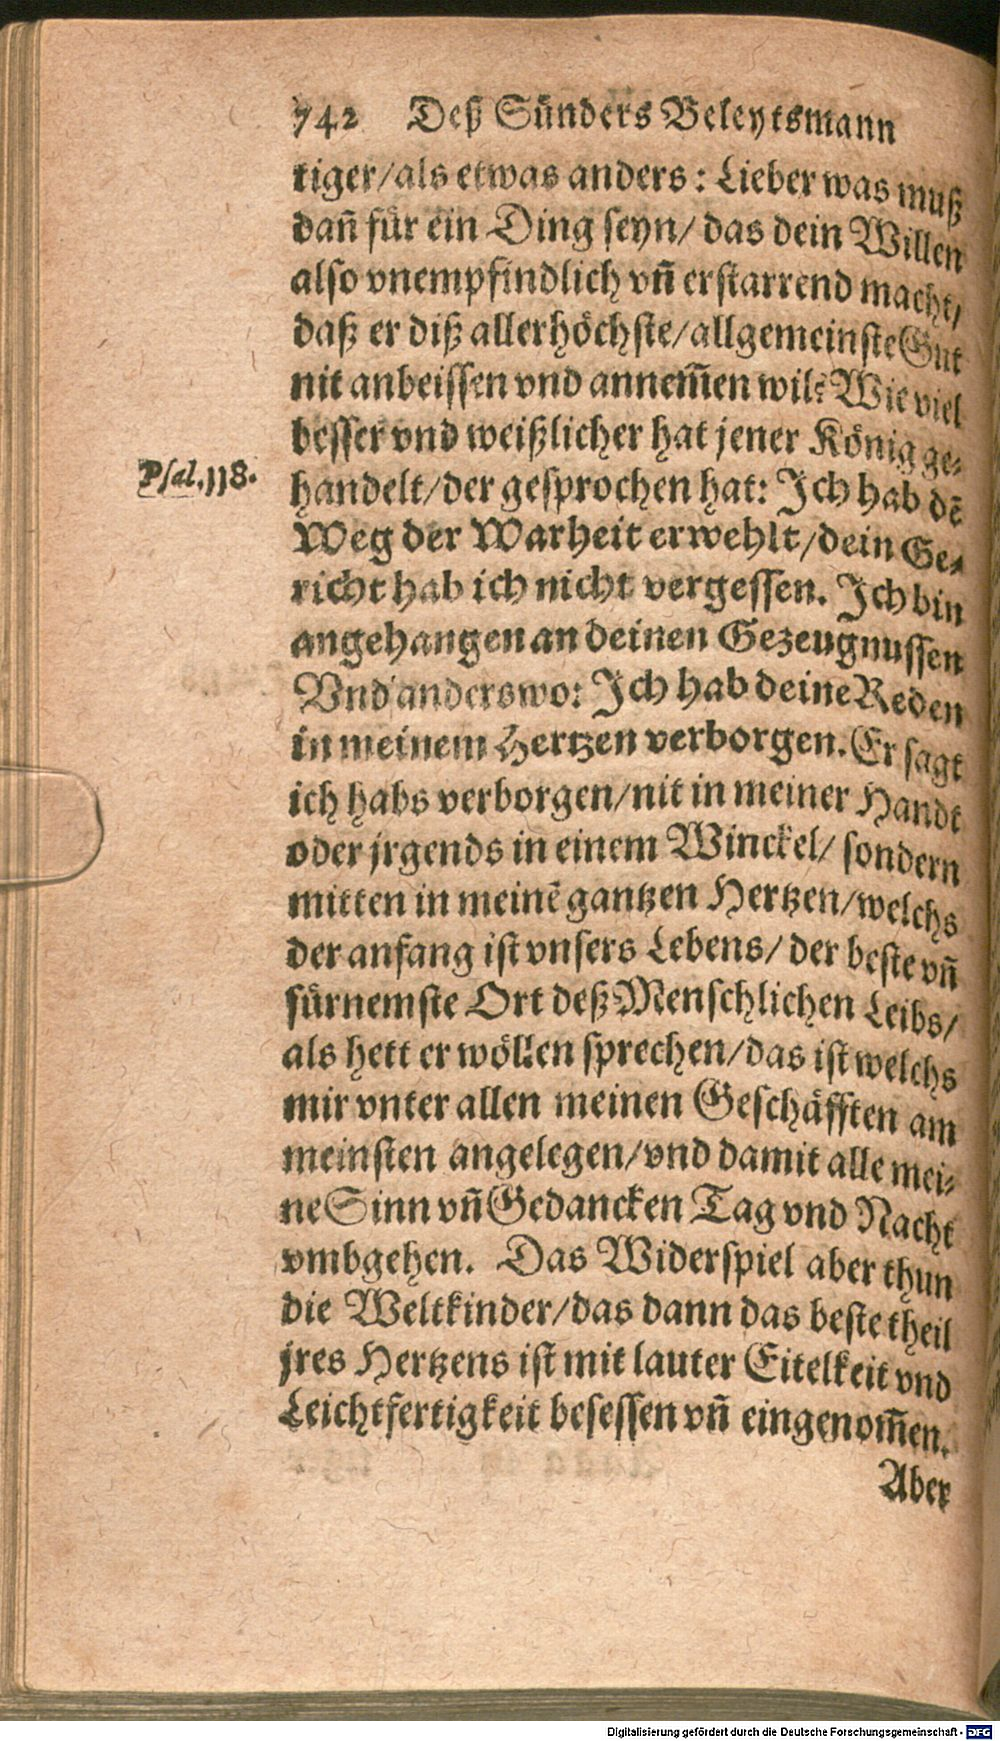 742 Deß Sünders Beleytsmann
tiger/als etwas anders: Lieber was muß
dañ für ein Ding seyn/ das dein Willen
also vnempfindlich vñ erstarrend macht/
daß er diß allerhöchste/allgemeinste Gut
nit anbeissen vnd annem̃en wil? Wie viel
besser vnd weißlicher hat jener König ge-
Psal.118.
handelt/der gesprochen hat: Ich hab dē
Weg der Warheit erwehlt/dein Ge-
richt hab ich nicht vergessen. Ich bin
angehangen an deinen Gezeugnussen
Vnd anderswo: Ich hab deine Reden
in meinem Hertzen verborgen. Er sagt
ich habs verborgen/nit in meiner Handt
oder jrgends in einem Winckel/ sondern
mitten in meinē gantzen Hertzen/welchs
der anfang ist vnsers Lebens/ der beste vñ
fürnemste Ort deß Menschlichen Leibs/
als hett er wöllen sprechen/das ist welchs
mir vnter allen meinen Geschäfften am
meinsten angelegen/vnd damit alle mei-
ne Sinn vñ Gedancken Tag vnd Nacht
vmbgehen. Das Widerspiel aber thun
die Weltkinder/das dann das beste theil
jres Hertzens ist mit lauter Eitelkeit vnd
Leichtfertigkeit besessen vñ eingenom̃en.
Aber
Digitalisierung gefördert durch die Deutsche Forschungsgemeinschaft - DFG